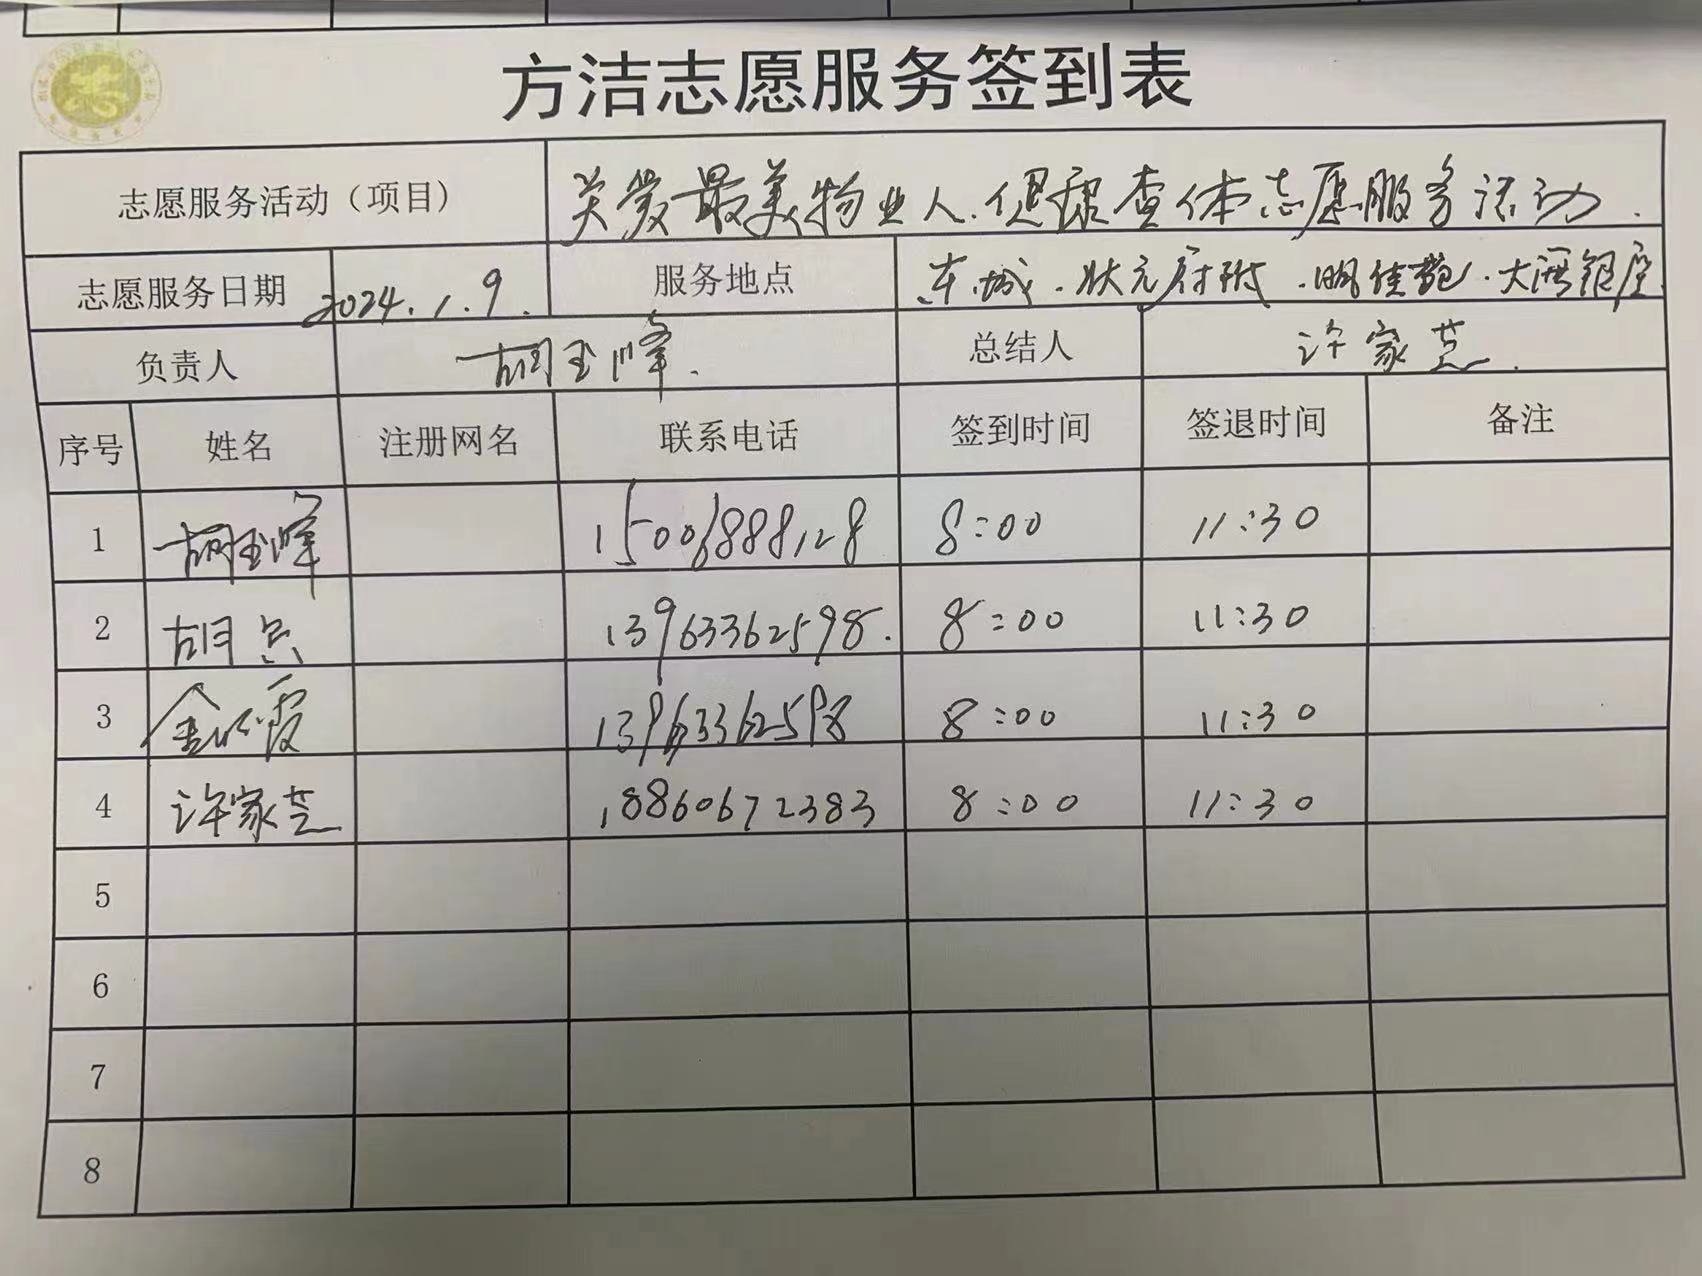 方洁志愿服务签到表
志愿服务活动（项目） 关爱最美物业人.健康查体志愿服务活动.
志愿服务日期 2024.1.9. 服务地点 东城.状元府邸.佳苑.大海银座
负责人 胡玉峰. 总结人 许家芝.
序号 姓名 注册网名 联系电话 签到时间 签退时间 备注
1 胡玉峰 15006888128 8:00 11:30
2 胡兵 13963362598. 8:00 11:30
3 金霞 13963362598 8:00 11:30
4 许家芝 18860672383 8:00 11:30
5
6
7
8